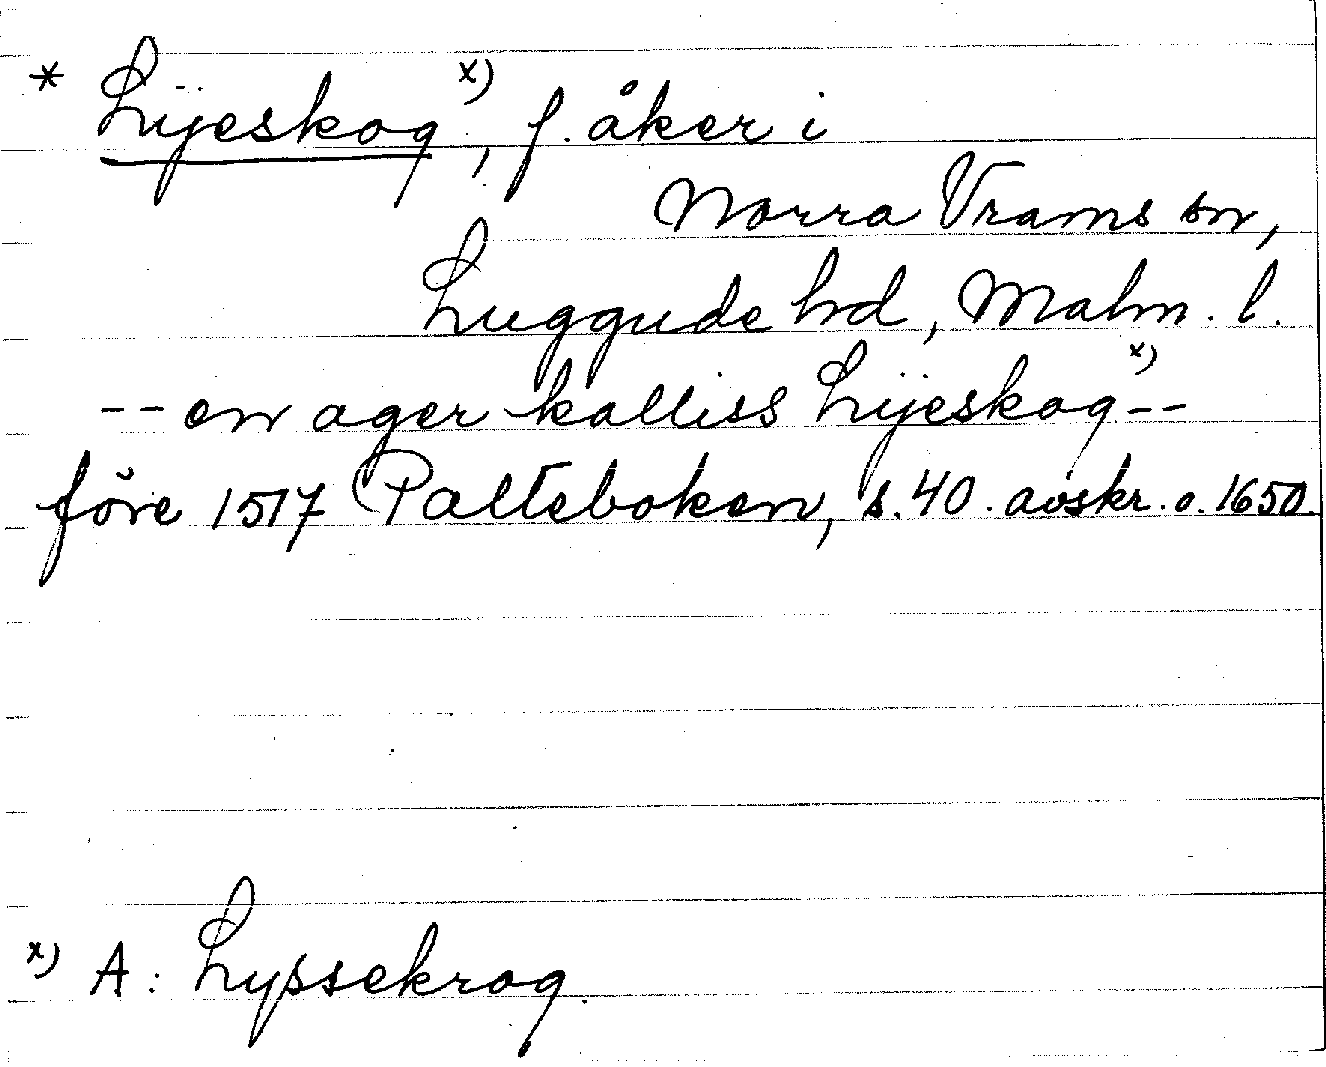 * Lijeskog x), f. åker i
Norra Vrams sn,
Luggude hd, Malm. l.
-- en ager kalliss Lijeskog x) --
före 1517 Palteboken, s. 40. avskr. o. 1650.
x) A: Lyssekrog.